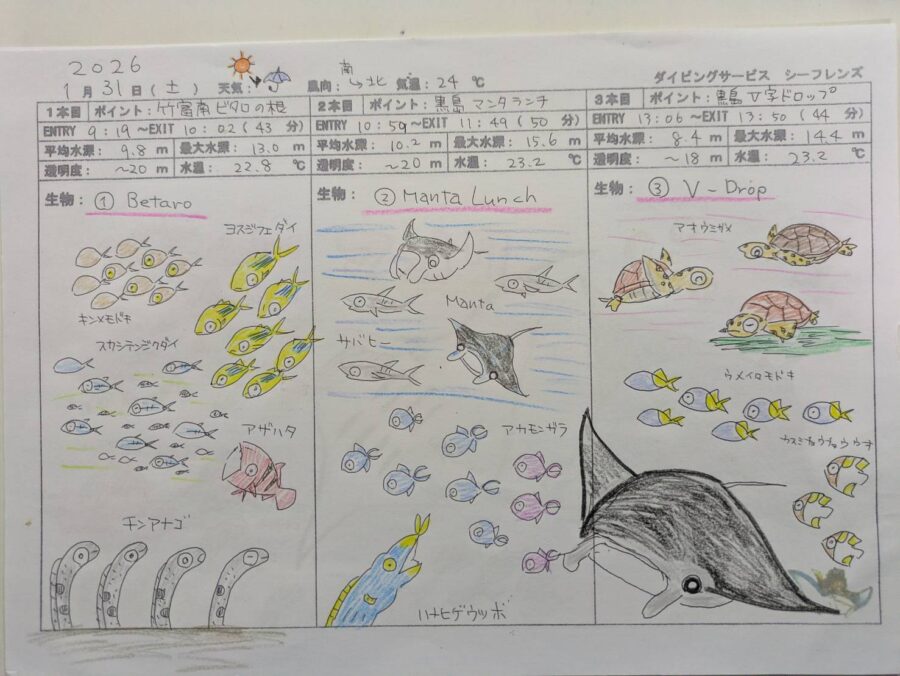 2026
1月 31日(土) 天気: 風向: 南→北 気温: 24 ℃ ダイビングサービス シーフレンズ
1本目 ポイント: 竹富南ビタロの根
ENTRY 9:19 ~EXIT 10:02 (43 分)
平均水深: 9.8 m 最大水深: 13.0 m
透明度: ~20 m 水温: 22.8 ℃
生物: ① Betaro
ヨスジフエダイ
キンメモドキ
スカシテンジクダイ
アザハタ
チンアナゴ
2本目 ポイント: 黒島 マンタランチ
ENTRY 10:59 ~EXIT 11:49 (50 分)
平均水深: 10.2 m 最大水深: 15.6 m
透明度: ~20 m 水温: 23.2 ℃
生物: ② Manta Lunch
Manta
サバヒー
アカモンガラ
ハナヒゲウツボ
3本目 ポイント: 黒島 V字ドロップ
ENTRY 13:06 ~EXIT 13:50 (44 分)
平均水深: 8.4 m 最大水深: 14.4 m
透明度: ~18 m 水温: 23.2 ℃
生物: ③ V-Drop
アオウミガメ
ウメイロモドキ
カスミチョウチョウウオ